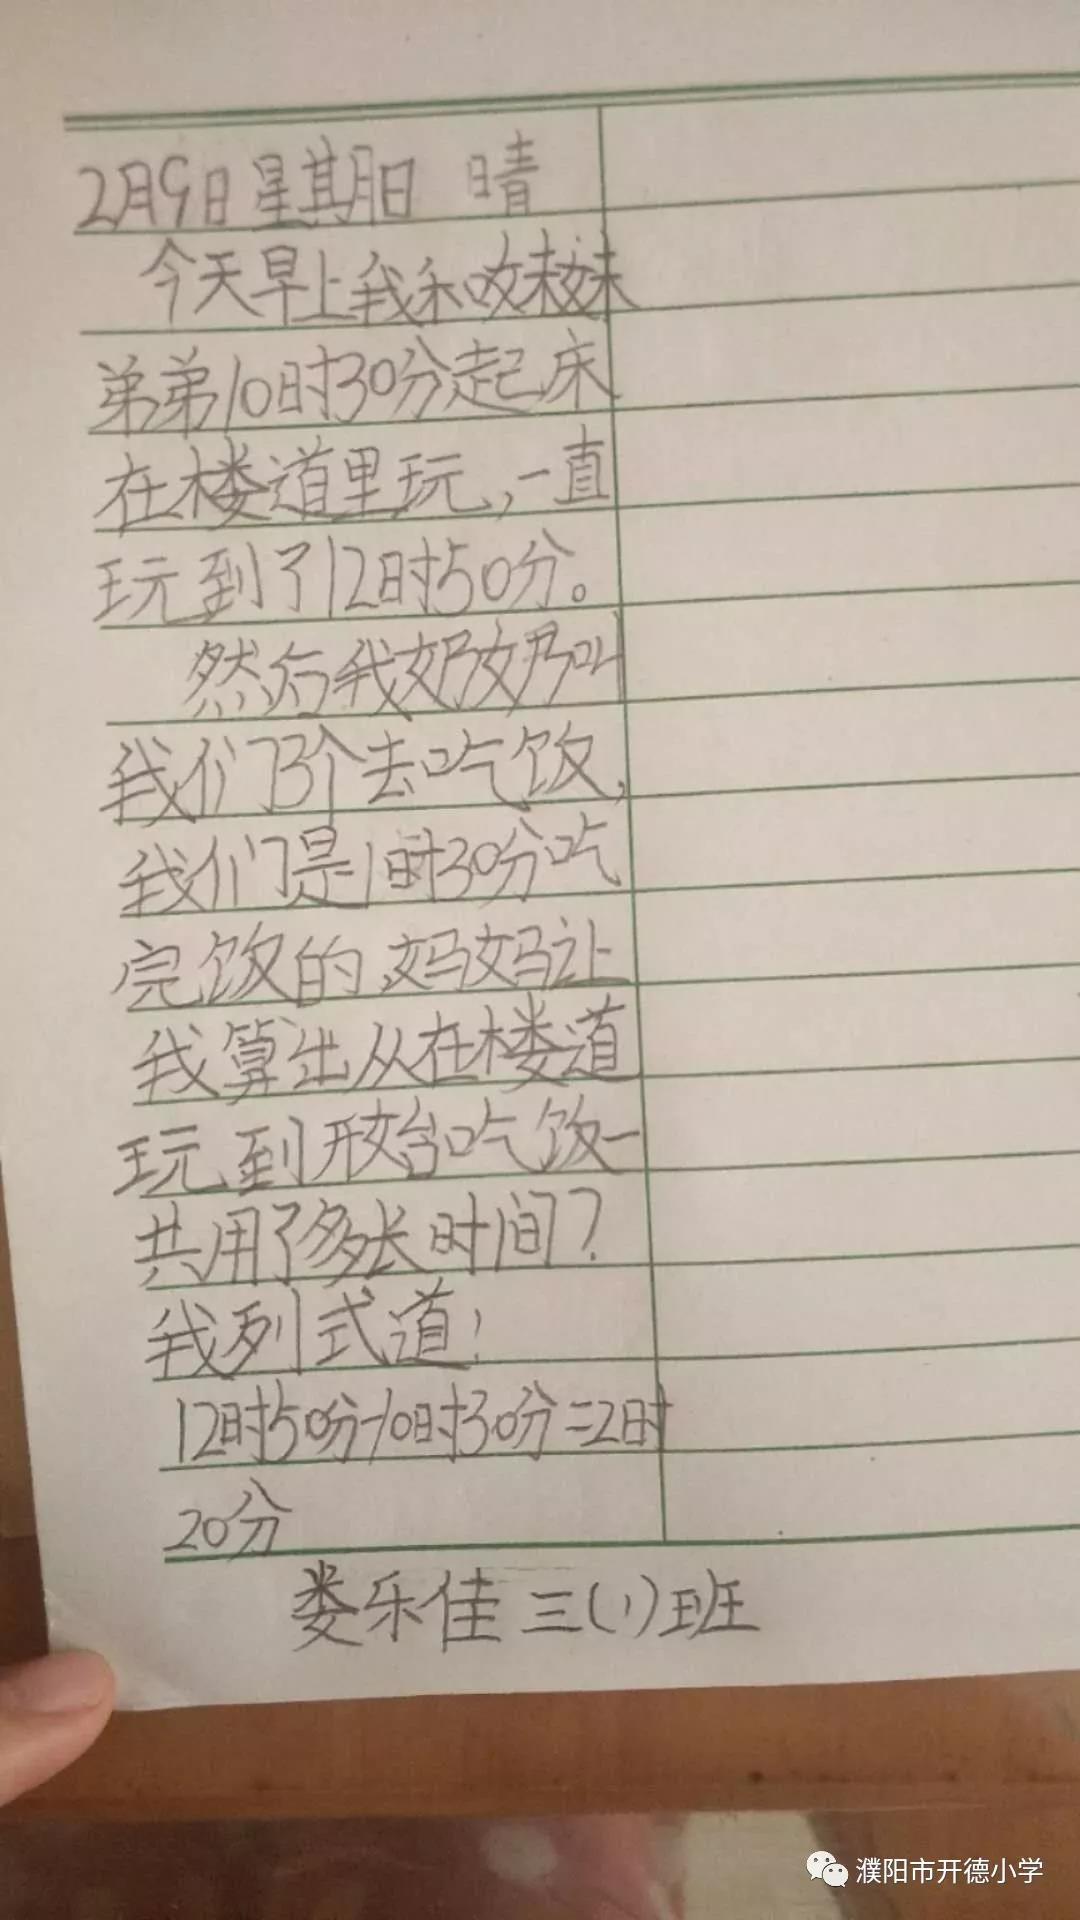 2月9日星期日 晴
今天早上我和妹妹
弟弟10时30分起床
在楼道里玩,一直
玩到了12时50分。
然后我奶奶叫
我们3个去吃饭,
我们是1时30分吃
完饭的,妈妈让
我算出从在楼道
玩到开始吃饭一
共用了多长时间?
我列式道:
12时50分-10时30分=2时
20分
娄乐佳 三(1)班
濮阳市开德小学